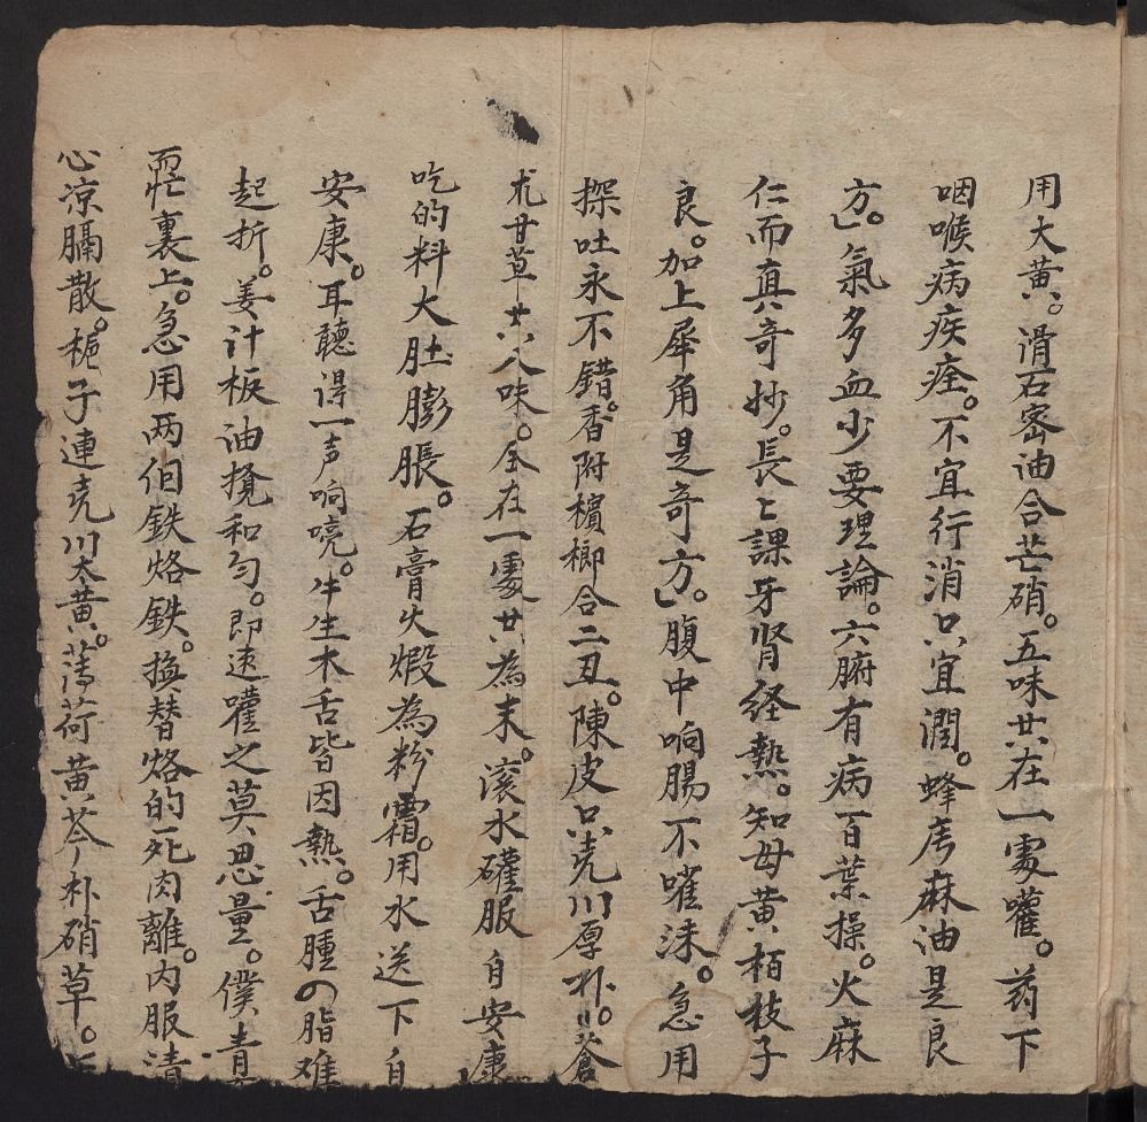 用大黄。滑石密油合芒硝。五味共在一處嚾。药下
咽喉病疾痊。不宜行消只宜潤。蜂房麻油是良
方。氣多血少要理論。六腑有病百葉操。火麻
仁而真奇妙。長〻課牙肾经熱。知母黄栢枝子
良。加上犀角是奇方。腹中响腸不嚾沫。急用
探吐永不錯。香附檳榔合二丑。陳皮只壳川厚朴。蒼
朮甘草共八味。全在一處共為末。滚水礶服自安康
吃的料大肚膨脹。石膏火煅為粉霜。用水送下自
安康。耳聽得一声响喨。牛生木舌皆因熱。舌腫の脂难
起折。姜汁板油攪和匀。即速嚾之莫思量。僕青
忙裏上。急用两個鉄烙鉄。換替烙的死肉離。内服清
心凉膈散。梔子連壳川大黄。薄荷黄芩朴硝草。